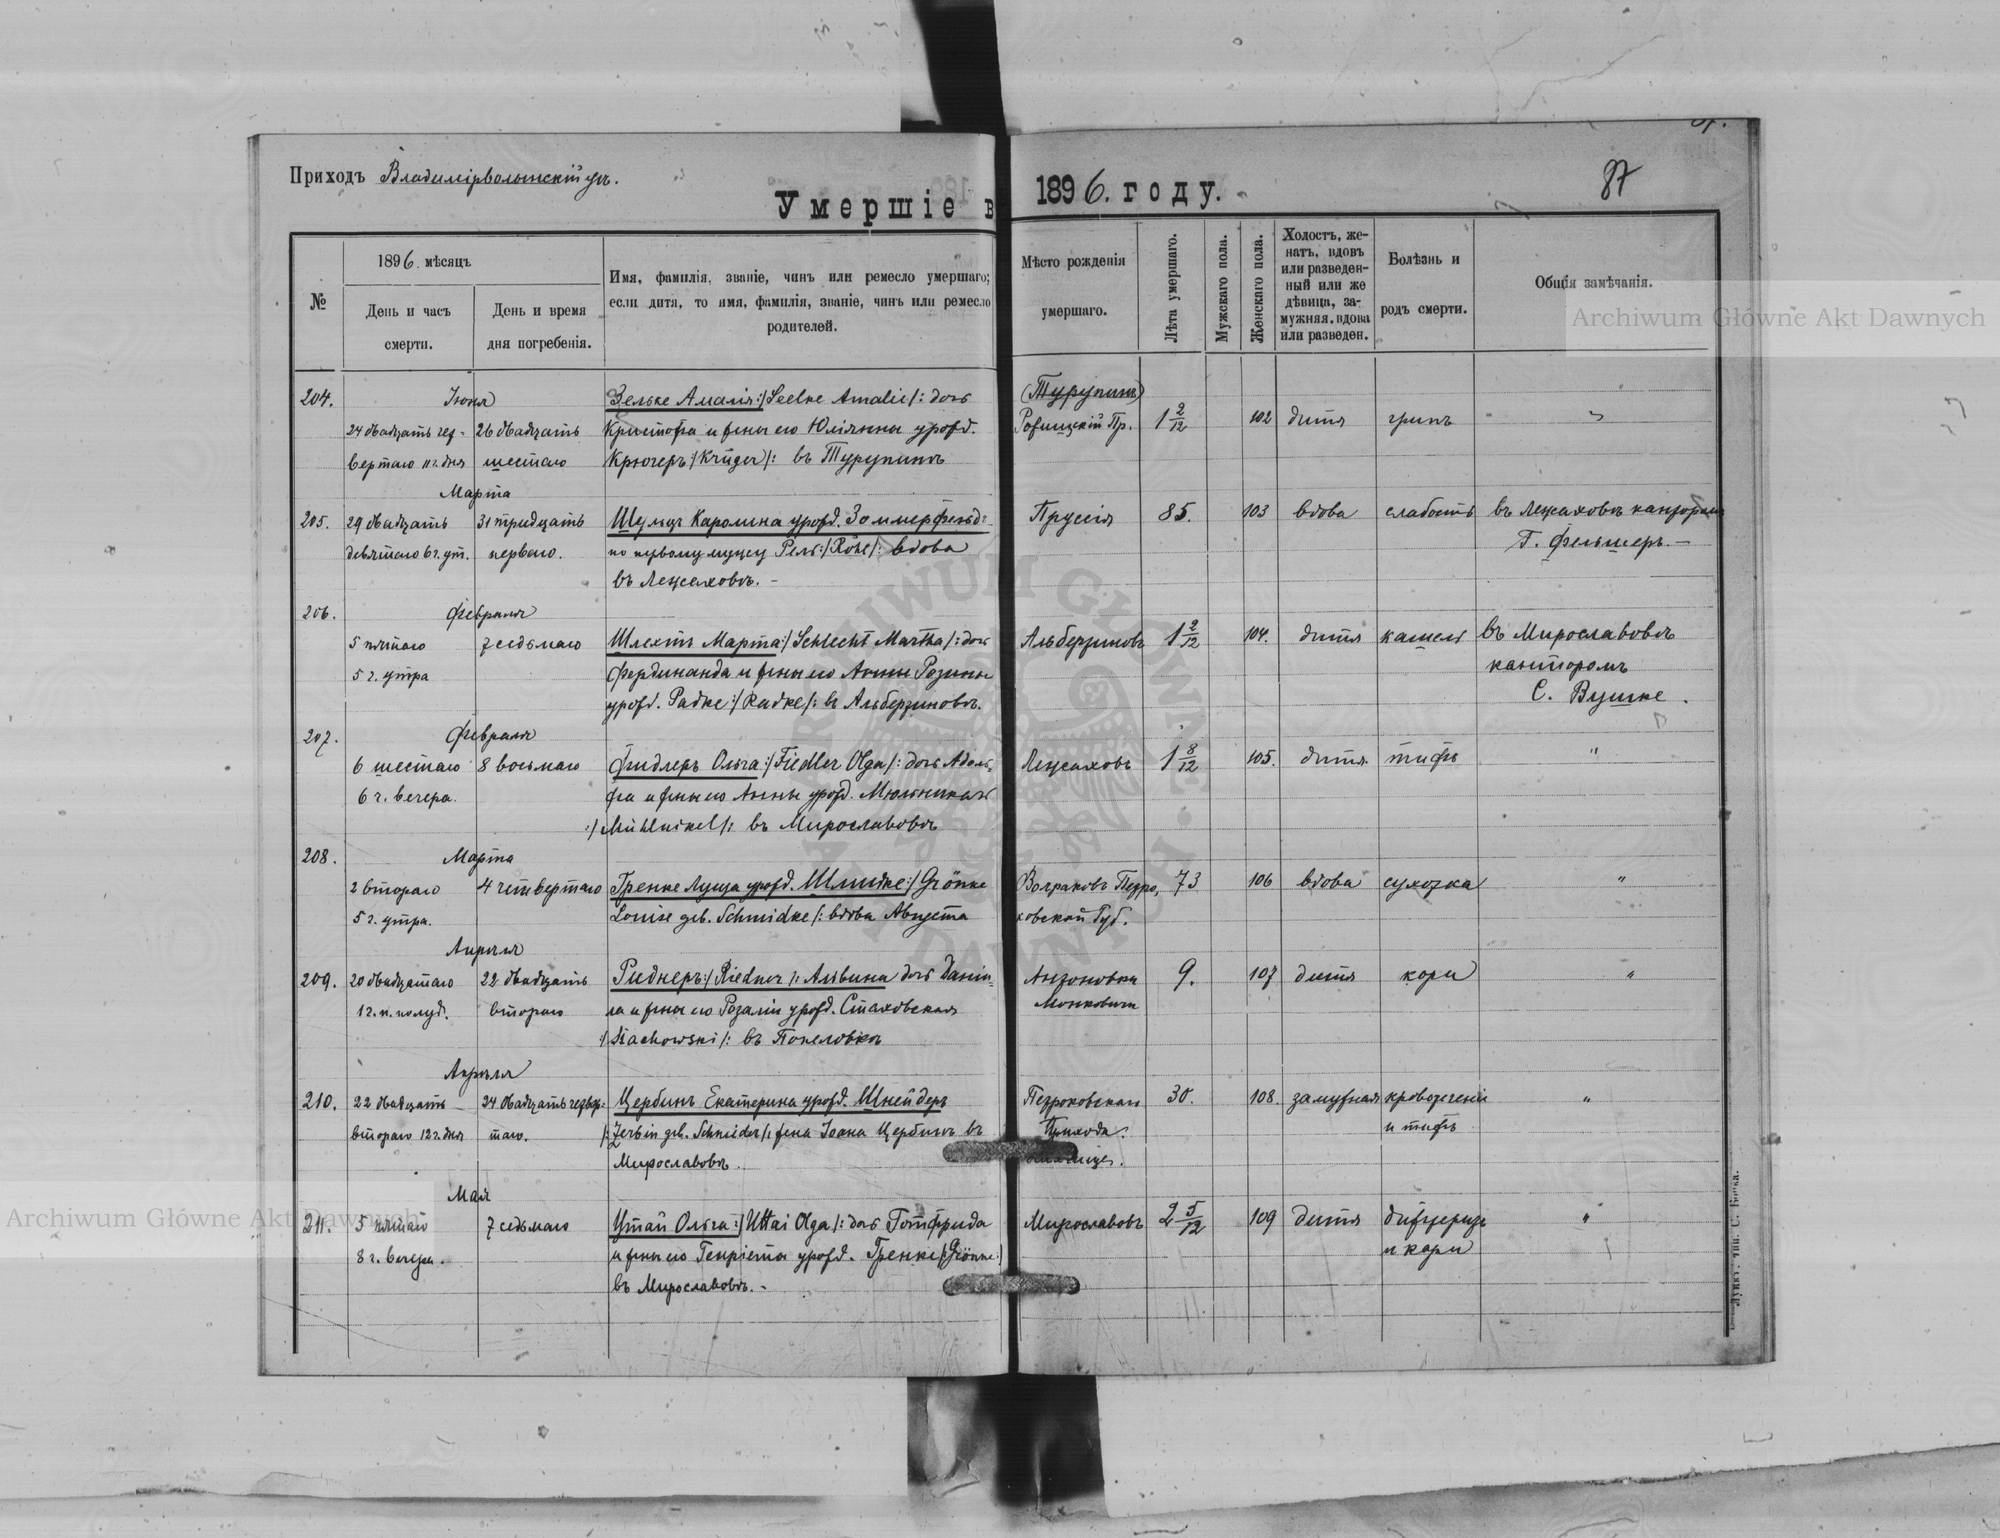 Приходъ Владимірволынскій уѣ.
87
Умершіе в 1896. году.
№
1896. мѣсяцъ
День и часъ смерти.
День и время дня погребенія.
Имя, фамилія, званіе, чинъ или ремесло умершаго;
если дитя, то имя, фамилія, званіе, чинъ или ремесло
родителей.
Мѣсто рожденія умершаго.
Лѣта умершаго.
Мужскаго пола.
Женскаго пола.
Холостъ, же-
натъ, вдовъ
или разведен-
ный или же
дѣвица, за-
мужняя, вдова
или разведен.
Болѣзнь и
родъ смерти.
Общія замѣчанія.
Archiwum Główne Akt Dawnych
204. Іюня
Зельке Амалія:/Seelke Amalie/: дочь (Турупинъ)
24 двадцать чет- 26 двадцать Кристофа и жены его Юліянны урожд. Рожищскій Пр. 1 2/12 102 дитя грипъ "
вертаго 11 ч. дня шестаго Крюгеръ:/Krüger/: въ Турупинѣ
Марта
205. 29 двадцать 31 тридцать Шульцъ Каролина урожд. Зоммерфельдъ Пруссія 85. 103 вдова слабость въ Лежаховѣ канторомъ
девятаго 6 ч. ут. перваго. по первому мужу Рель:/Röhl/: вдова Г. Фельшеръ.—
въ Лежаховѣ.—
206. Февраля
5 пятаго 7 седьмаго Шлехтъ Марта:/Schlecht Martha/: дочь Альберзиновъ 1 2/12 104. дитя кашель въ Мирославовѣ
5 ч. утра Фердинанда и жены его Анны Розины канторомъ
урожд. Радке:/Radke/: въ Альберзиновѣ. С. Вушке.
207. Февраля
6 шестаго 8 восьмаго Фидлеръ Ольга:/Fiedler Olga/: дочь Адоль- Лежаховъ 1 8/12 105. дитя тифъ "
6 ч. вечера. фа и жены его Анны урожд. Мюльникель
:/Mühlnikel/: въ Мирославовѣ
208. Марта
2 втораго 4 четвертаго Гренке Луиза урожд. Шмидке:/Grönke 73 106 вдова сухотка "
5 ч. утра. Louise geb. Schmidke/: вдова Августа ковской Губ.
Апрѣля
209. 20 двадцатаго 22 двадцать Риднеръ:/Riedner/: Альвина дочь Даніи- Антоновка 9. 107 дитя кори "
1 ч. п. полуд. втораго ла и жены его Розаліи урожд. Стаховская Монковичи
:/Stachowski/: въ Попеловкѣ
Апрѣля
210. 22 двадцать 24 двадцать четвер- Цербинъ Екатерина урожд. Шнейдеръ Петроковскаго 30. 108. замужняя кровотеченіе "
втораго 12 ч. дня таго. /:Zerbin geb. Schneider/: жена Іоана Цербинъ въ Прихода. и тифъ
Мирославовѣ.
Мая
211. 5 пятаго 7 седьмаго Уттай Ольга:/Uttai Olga/: дочь Готфрида Мирославовъ 2 5/12 109 дитя дифтеритъ "
8 ч. вечера. и жены его Генріета урожд. Гренке/:Grönke:/ и кори
въ Мирославовѣ.—
Archiwum Główne Akt Dawnych